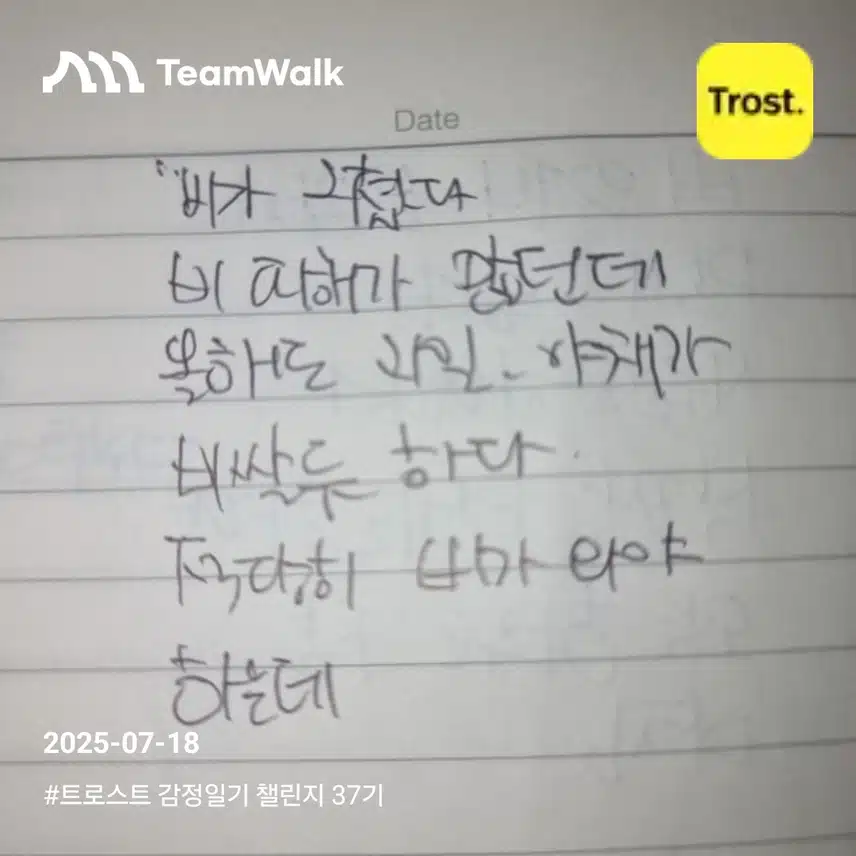 TeamWalk
Trost.
Date
"비가 그쳤다
비 피해가 많던데
올해도 과일、야채가
비쌀듯 하다
적당히 비가 와야
하는데
2025-07-18
#트로스트 감정일기 챌린지 37기